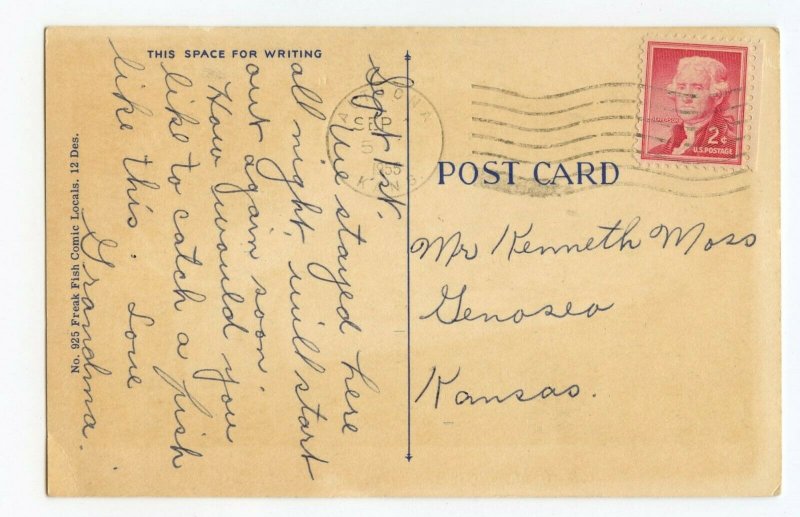 THIS SPACE FOR WRITING
Sept 1st.
We stayed here
all night, will start
out again soon.
How would you
like to catch a fish
like this. Love
Grandma.
No. 925 Freak Fish Comic Locals. 12 Des.
SEP
KANS
POST CARD
2¢
U.S. POSTAGE
Mr Kenneth Moss
Genoseo
Kansas.